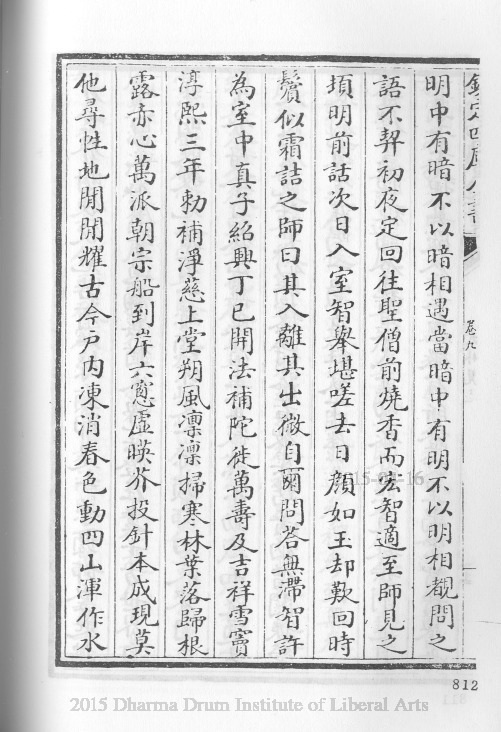 欽定四庫全書
卷九
明中有暗不以暗相遇當暗中有明不以明相覩問之
語不契初夜定回往聖僧前燒香而宏智適至師見之
頃明前話次日入室智舉堪嗟去日顏如玉却歎回時
鬢似霜詰之師曰其入離其出微自爾問答無滯智許
為室中真子紹興丁巳開法補陀徙萬壽及吉祥雪竇
淳熙三年勅補淨慈上堂朔風凛凛掃寒林葉落歸根
露赤心萬派朝宗船到岸六窻虚暎芥投針本成現莫
他尋性地閒閒耀古今戸内凍消春色動四山渾作水
812
2015 Dharma Drum Institute of Liberal Arts